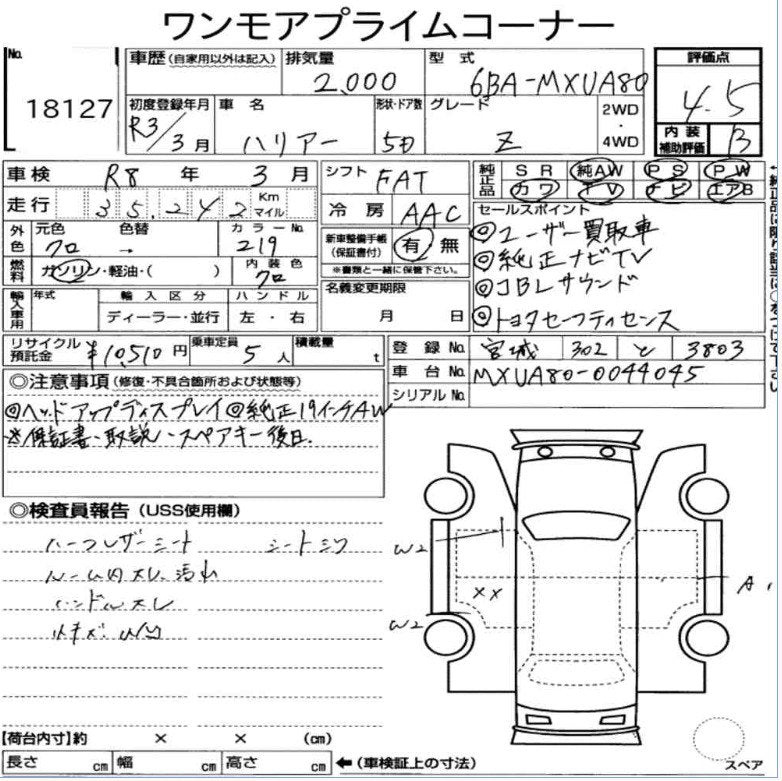 ワンモアプライムコーナー
No. 18127
車歴 (自家用以外は記入) 排気量 2,000 型式 6BA-MXUA80
初度登録年月 R3/3月 車名 ハリアー 形状・ドア数 5D グレード Z 2WD・4WD
評価点 4.5
内装補助評価 B
車検 R8年 3月 シフト FAT
走行 35,242 Km マイル 冷房 AAC
純正品 SR 純AW PS PW
カワ TV ナビ エアB
外色 元色 クロ 色替 → カラーNo. 219
燃料 ガソリン・軽油・( ) 内装色 クロ
新車整備手帳 (保証書付) 有 無
※書類と一緒に保管下さい。
セールスポイント
◎ユーザー買取車
◎純正ナビTV
◎JBLサウンド
◎トヨタセーフティセンス
輸入車用 年式 輸入区分 ハンドル
ディーラー・並行 左・右
名義変更期限 月 日
リサイクル預託金 ¥10,510円 乗車定員 5人 積載量 t
登録No. 宮城 302 と 3803
車台No. MXUA80-0044045
シリアルNo.
◎注意事項 (修復・不具合箇所および状態等)
◎ヘッドアップディスプレイ ◎純正19インチAW
※保証書・取説・スペアキー後日.
◎検査員報告 (USS使用欄)
ハーフレザーシート シートシワ
ルーム内スレ、汚れ
ハンドルスレ
W2
XX
W2
A1
スペア
【荷台内寸】約 × × (cm)
長さ cm 幅 cm 高さ cm ←(車検証上の寸法)